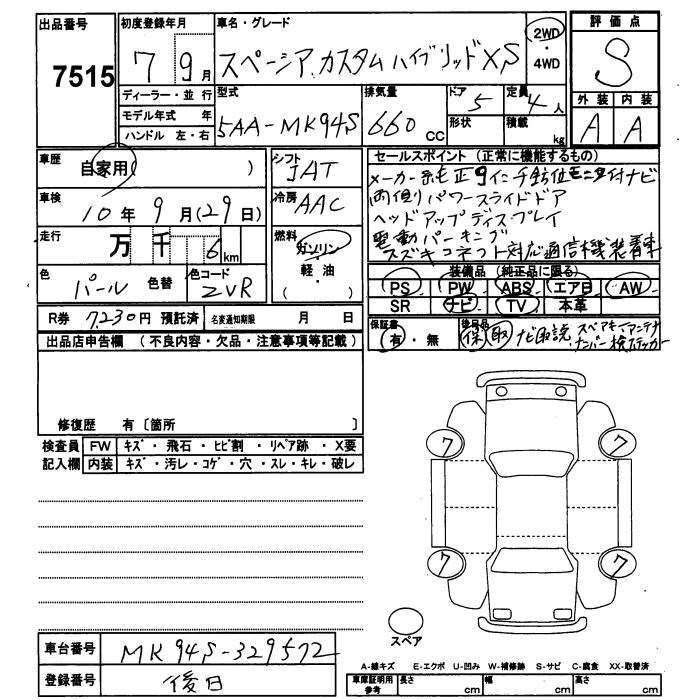 出品番号 7515
初度登録年月 7 9月
車名・グレード スペーシア.カスタムハイブリッドXS
2WD・4WD
評価点 S
外装 A 内装 A
ディーラー・並行
モデル年式 年
ハンドル 左・右
型式 5AA-MK94S
排気量 660 cc
ドア 5
形状
定員 4人
積載 kg
車歴 自家用( )
車検 10年9月(29日)
走行 万 千 6 km
色 パール 色替
色コード ZVR
シフト IAT
冷房 AAC
燃料 ガソリン・軽・油 ( )
セールスポイント (正常に機能するもの)
メーカー純正9インチ鈴位モニタ付ナビ
両側パワースライドドア
ヘッドアップディスプレイ
電動パーキング
スズキコネクト対応通信機装着車
装備品 (純正品に限る)
PS PW ABS エアB AW
SR ナビ TV 本革
R券 7,230円 預託済
名変通知期限 月 日
保証書 有・無
後日品 保 取 ナビ取説 スペアキー アンテナ
ナンバー検ステッカー
出品店申告欄 (不良内容・欠品・注意事項等記載)
修復歴 有〔箇所 〕
検査員記入欄
FW キズ・飛石・ヒビ割・リペア跡・X要
内装 キズ・汚レ・コゲ・穴・スレ・キレ・破レ
7 7
7 7
スペア
車台番号 MK94S-329572
登録番号 後日
A-線キズ E-エクボ U-凹み W-補修跡 S-サビ C-腐食 XX-取替済
車庫証明用参考 長さ cm 幅 cm 高さ cm